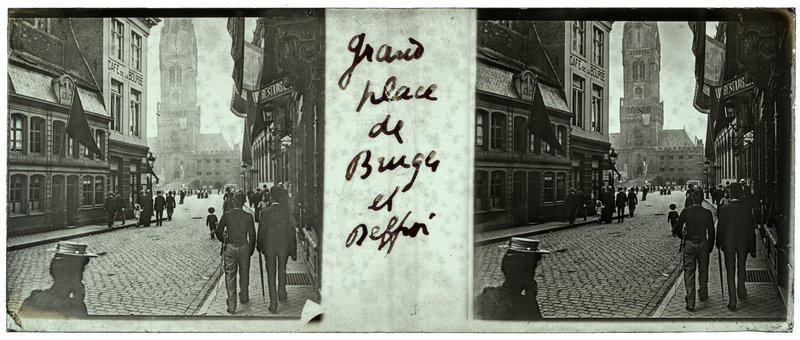 CAFÉ DE LA BOURSE
Grand
place
de
Bruges
et
Beffroi
CAFÉ DE LA BOURSE